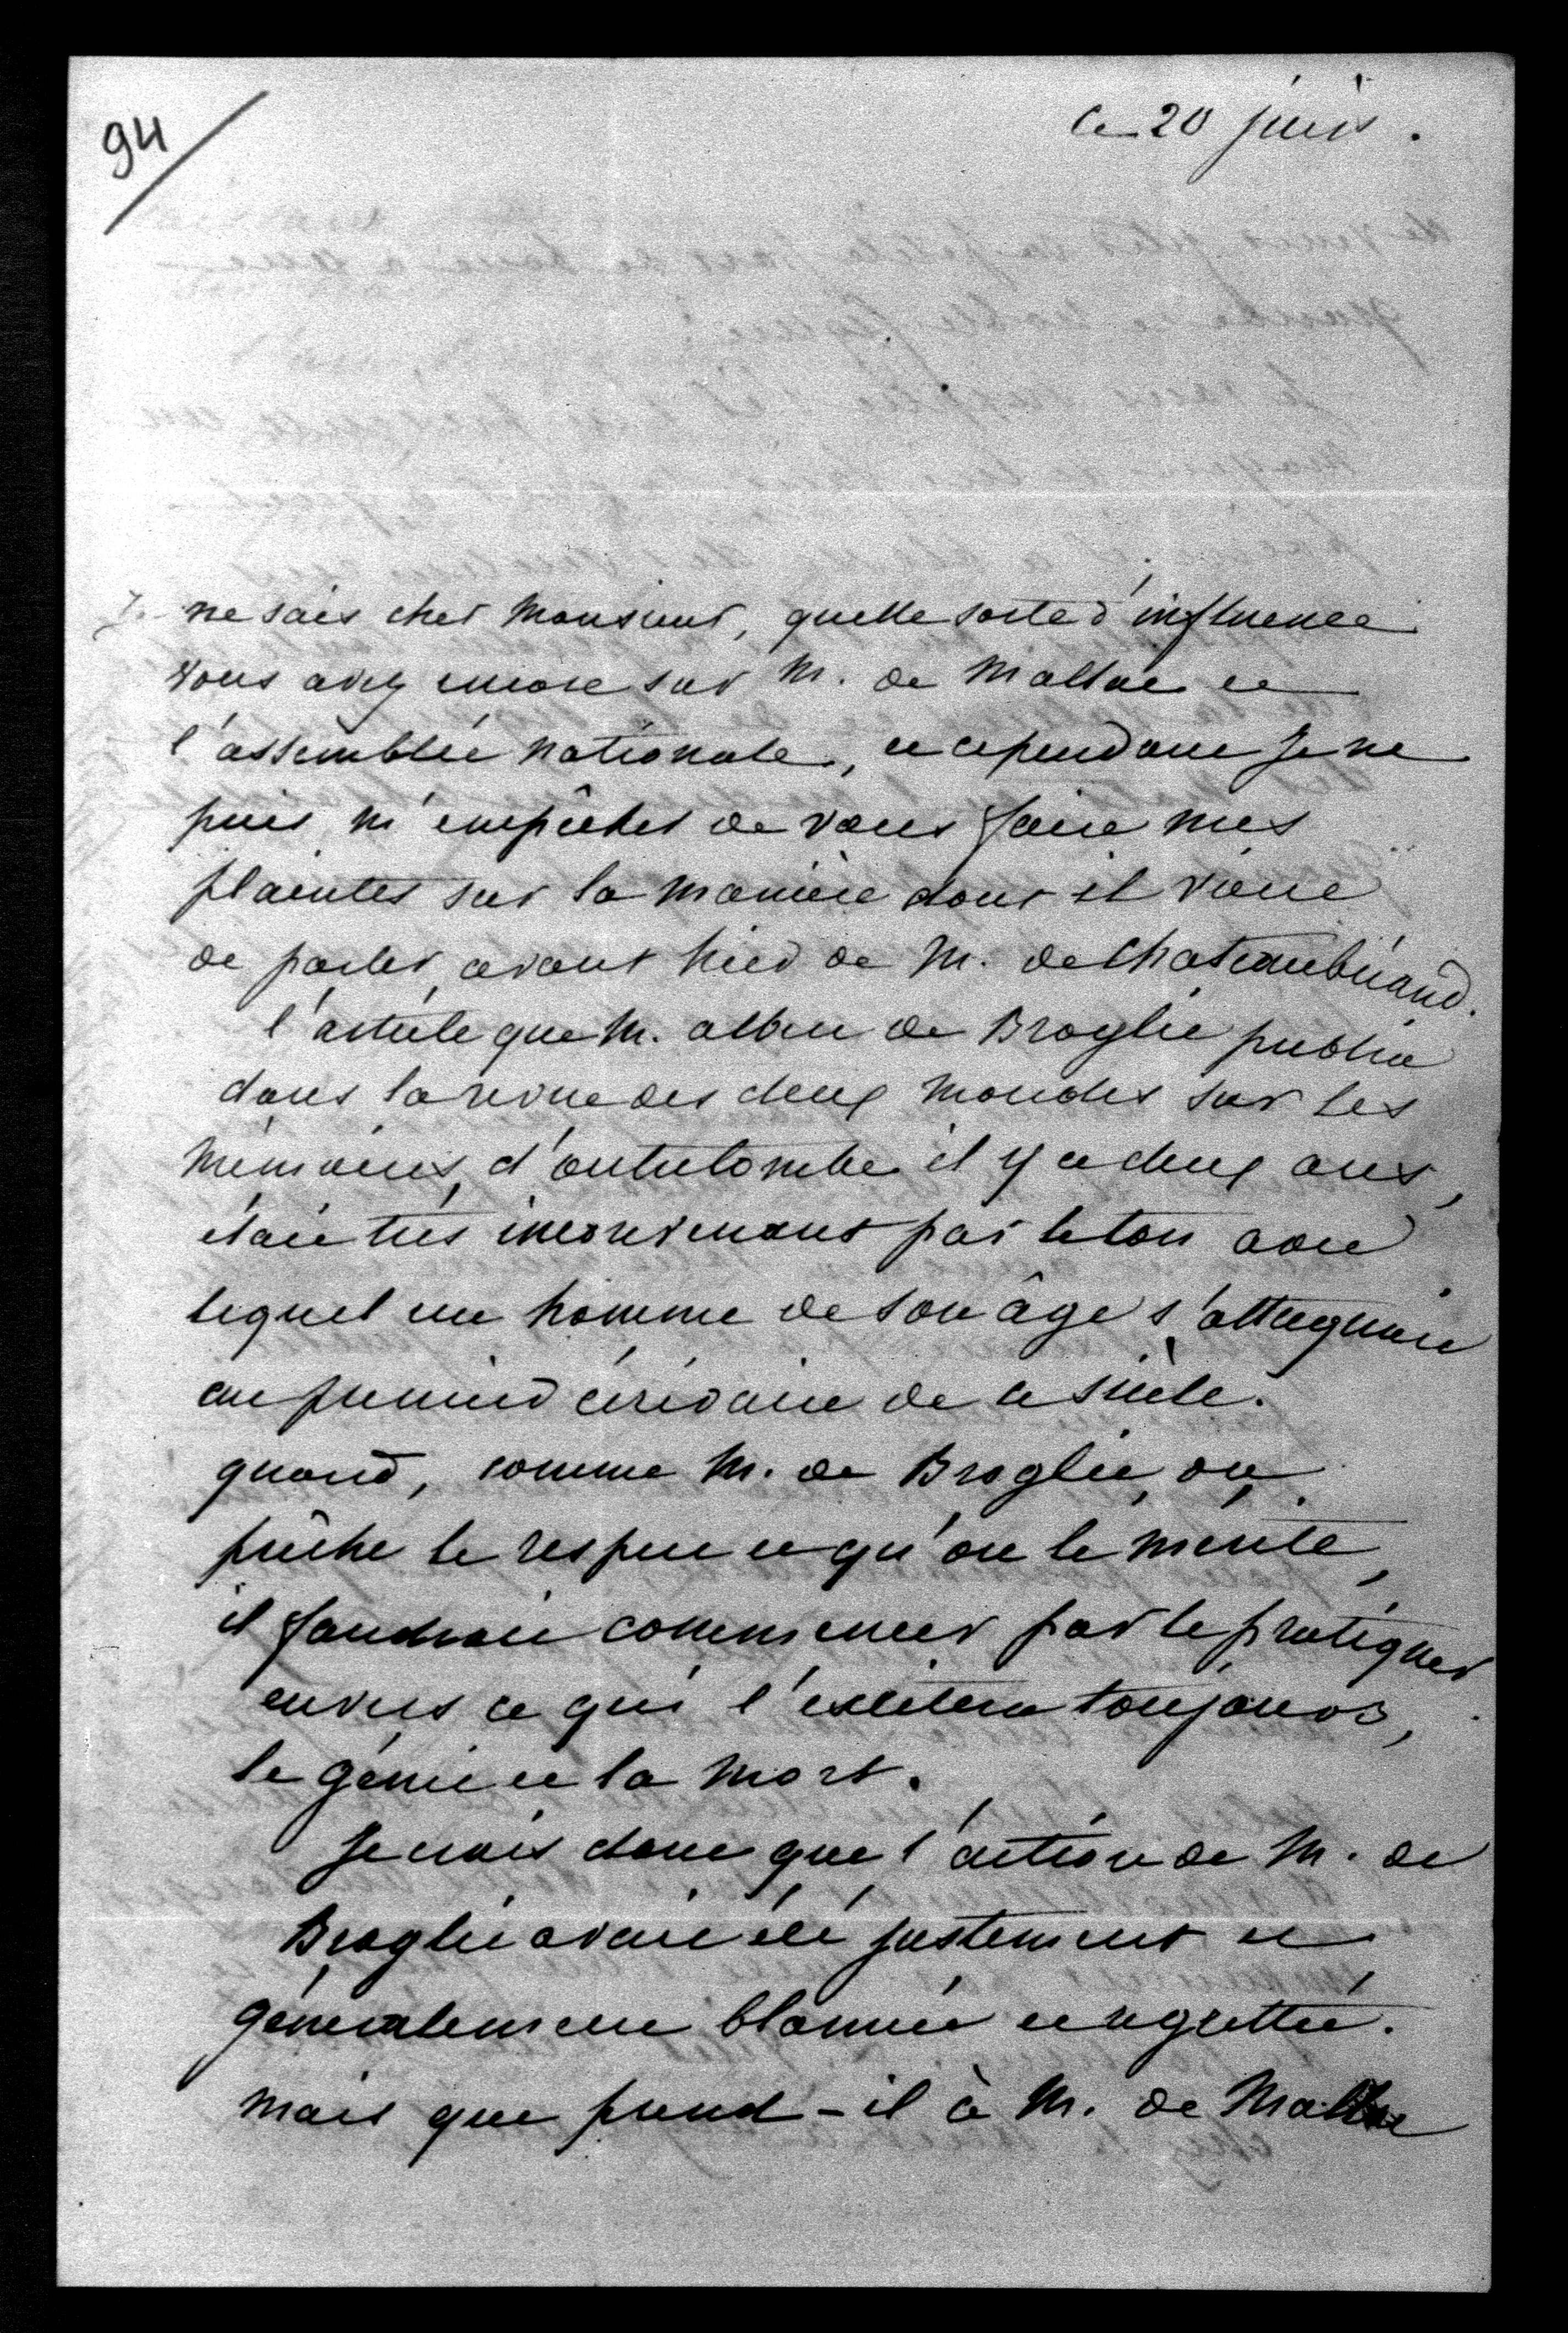 94
Ce 20 juin.
Je ne sais cher Monsieur, quelle sorte d'influence
vous avez encore sur M. de Mallac et
l'assemblée nationale, et cependant Je ne
puis m'empêcher de vous faire mes
plaintes sur la manière dont il vient
de parler, avant hier de M. de chateaubriand.
l'article que M. albert de Broglie publia
dans la revue des deux Mondes sur les
Mémoires, d'outretombe il y a deux ans,
était très inconvenant par le ton avec
lequel un homme de son âge s'attaquait
au premier écrivain de ce siècle.
quand, comme M. de Broglie, on
prêche le respect et qu'on le mérite,
il faudrait commencer par le pratiquer
envers ce qui l'excitera toujours,
le génie et la mort.
Je crois donc que l'action de M. de
Broglie avait été justement et
généralement blamée et regrettée.
mais que prend-il à M. de Mallac